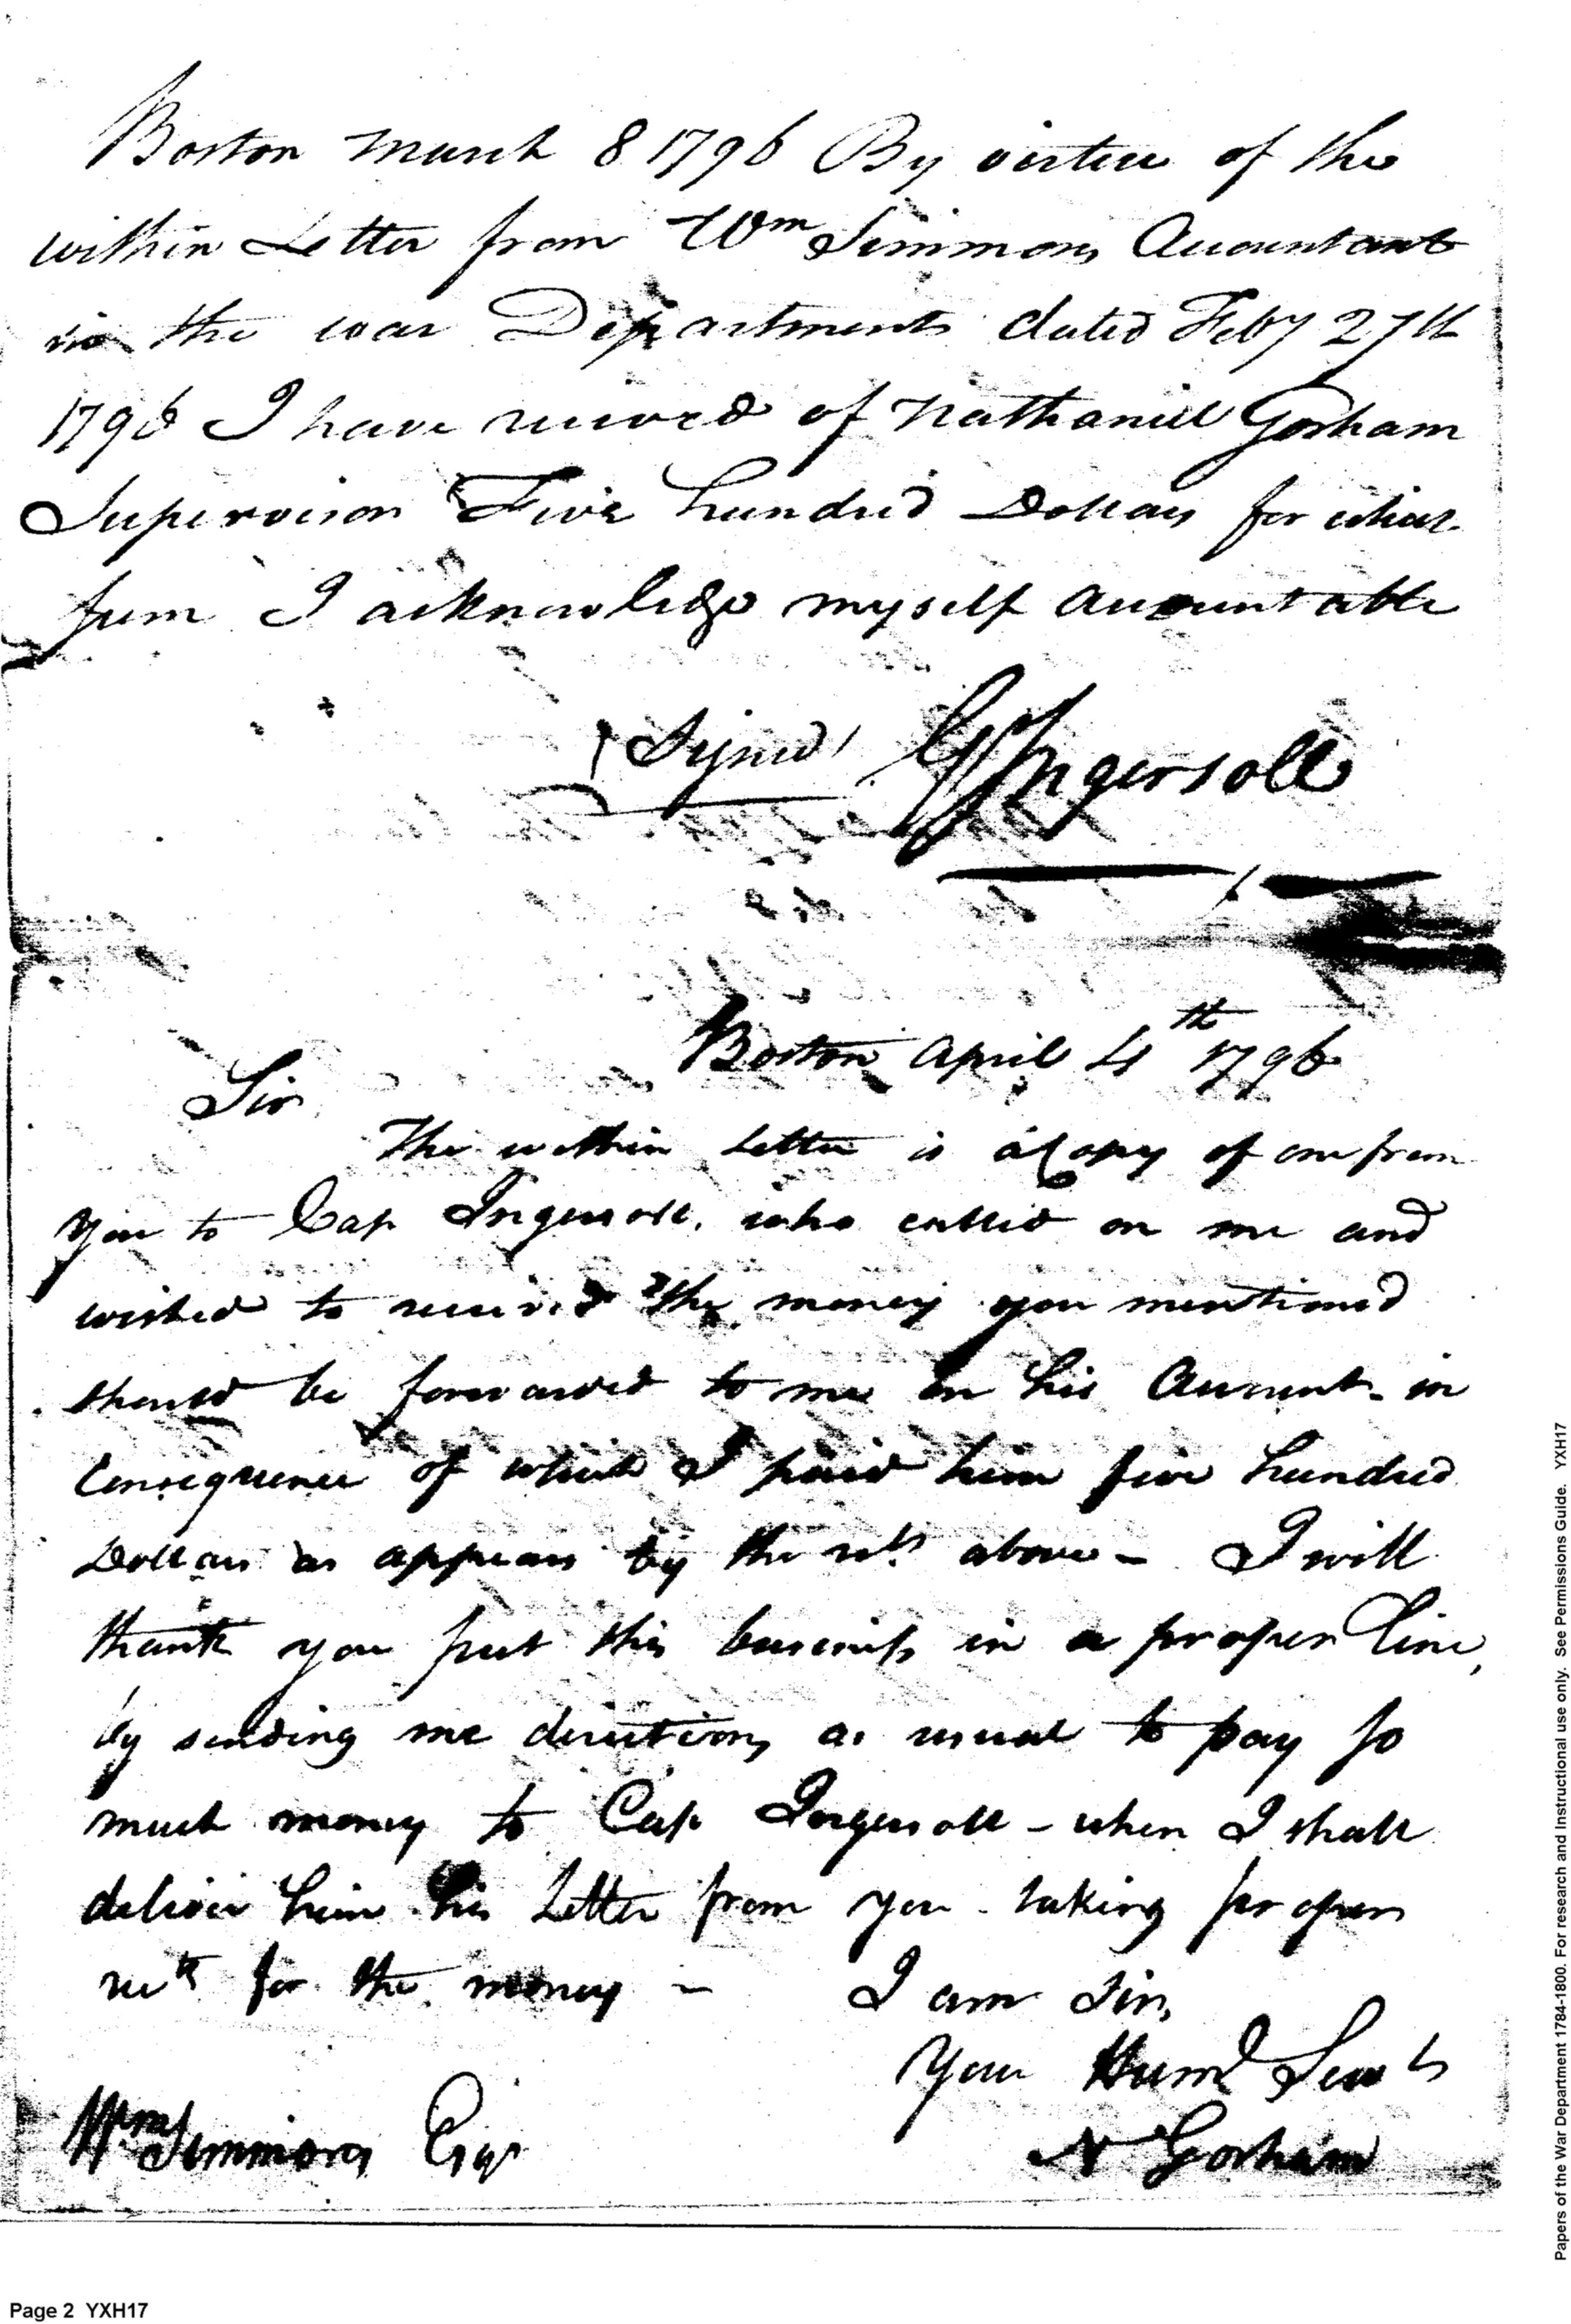 Boston March 8 1796 By virtue of the
within Letter from Wm Simmons Accountant
in the war Department dated Feby 27th
1796 I have received of Nathaniel Gorham
Supervisor Five hundred Dollars for which
sum I acknowledge myself accountable
(Signed) G Ingersoll
Boston April 4th 1796
Sir
The within Letter is a Copy of one from
you to Cap Ingersoll, who called on me and
wished to receive the money you mentioned
should be forwarded to me on his Account - in
Consequence of which I paid him five hundred
Dollars as appears by the rect above - I will
thank you put this business in a proper line,
by sending me directions as usual to pay so
much money to Cap Ingersoll - when I shall
deliver him his Letter from you - taking proper
rects for the money - I am Sir,
Your Huml Servt
N Gorham
Wm Simmons Esqr
Papers of the War Department 1784-1800. For research and instructional use only. See Permissions Guide. YXH17
Page 2 YXH17